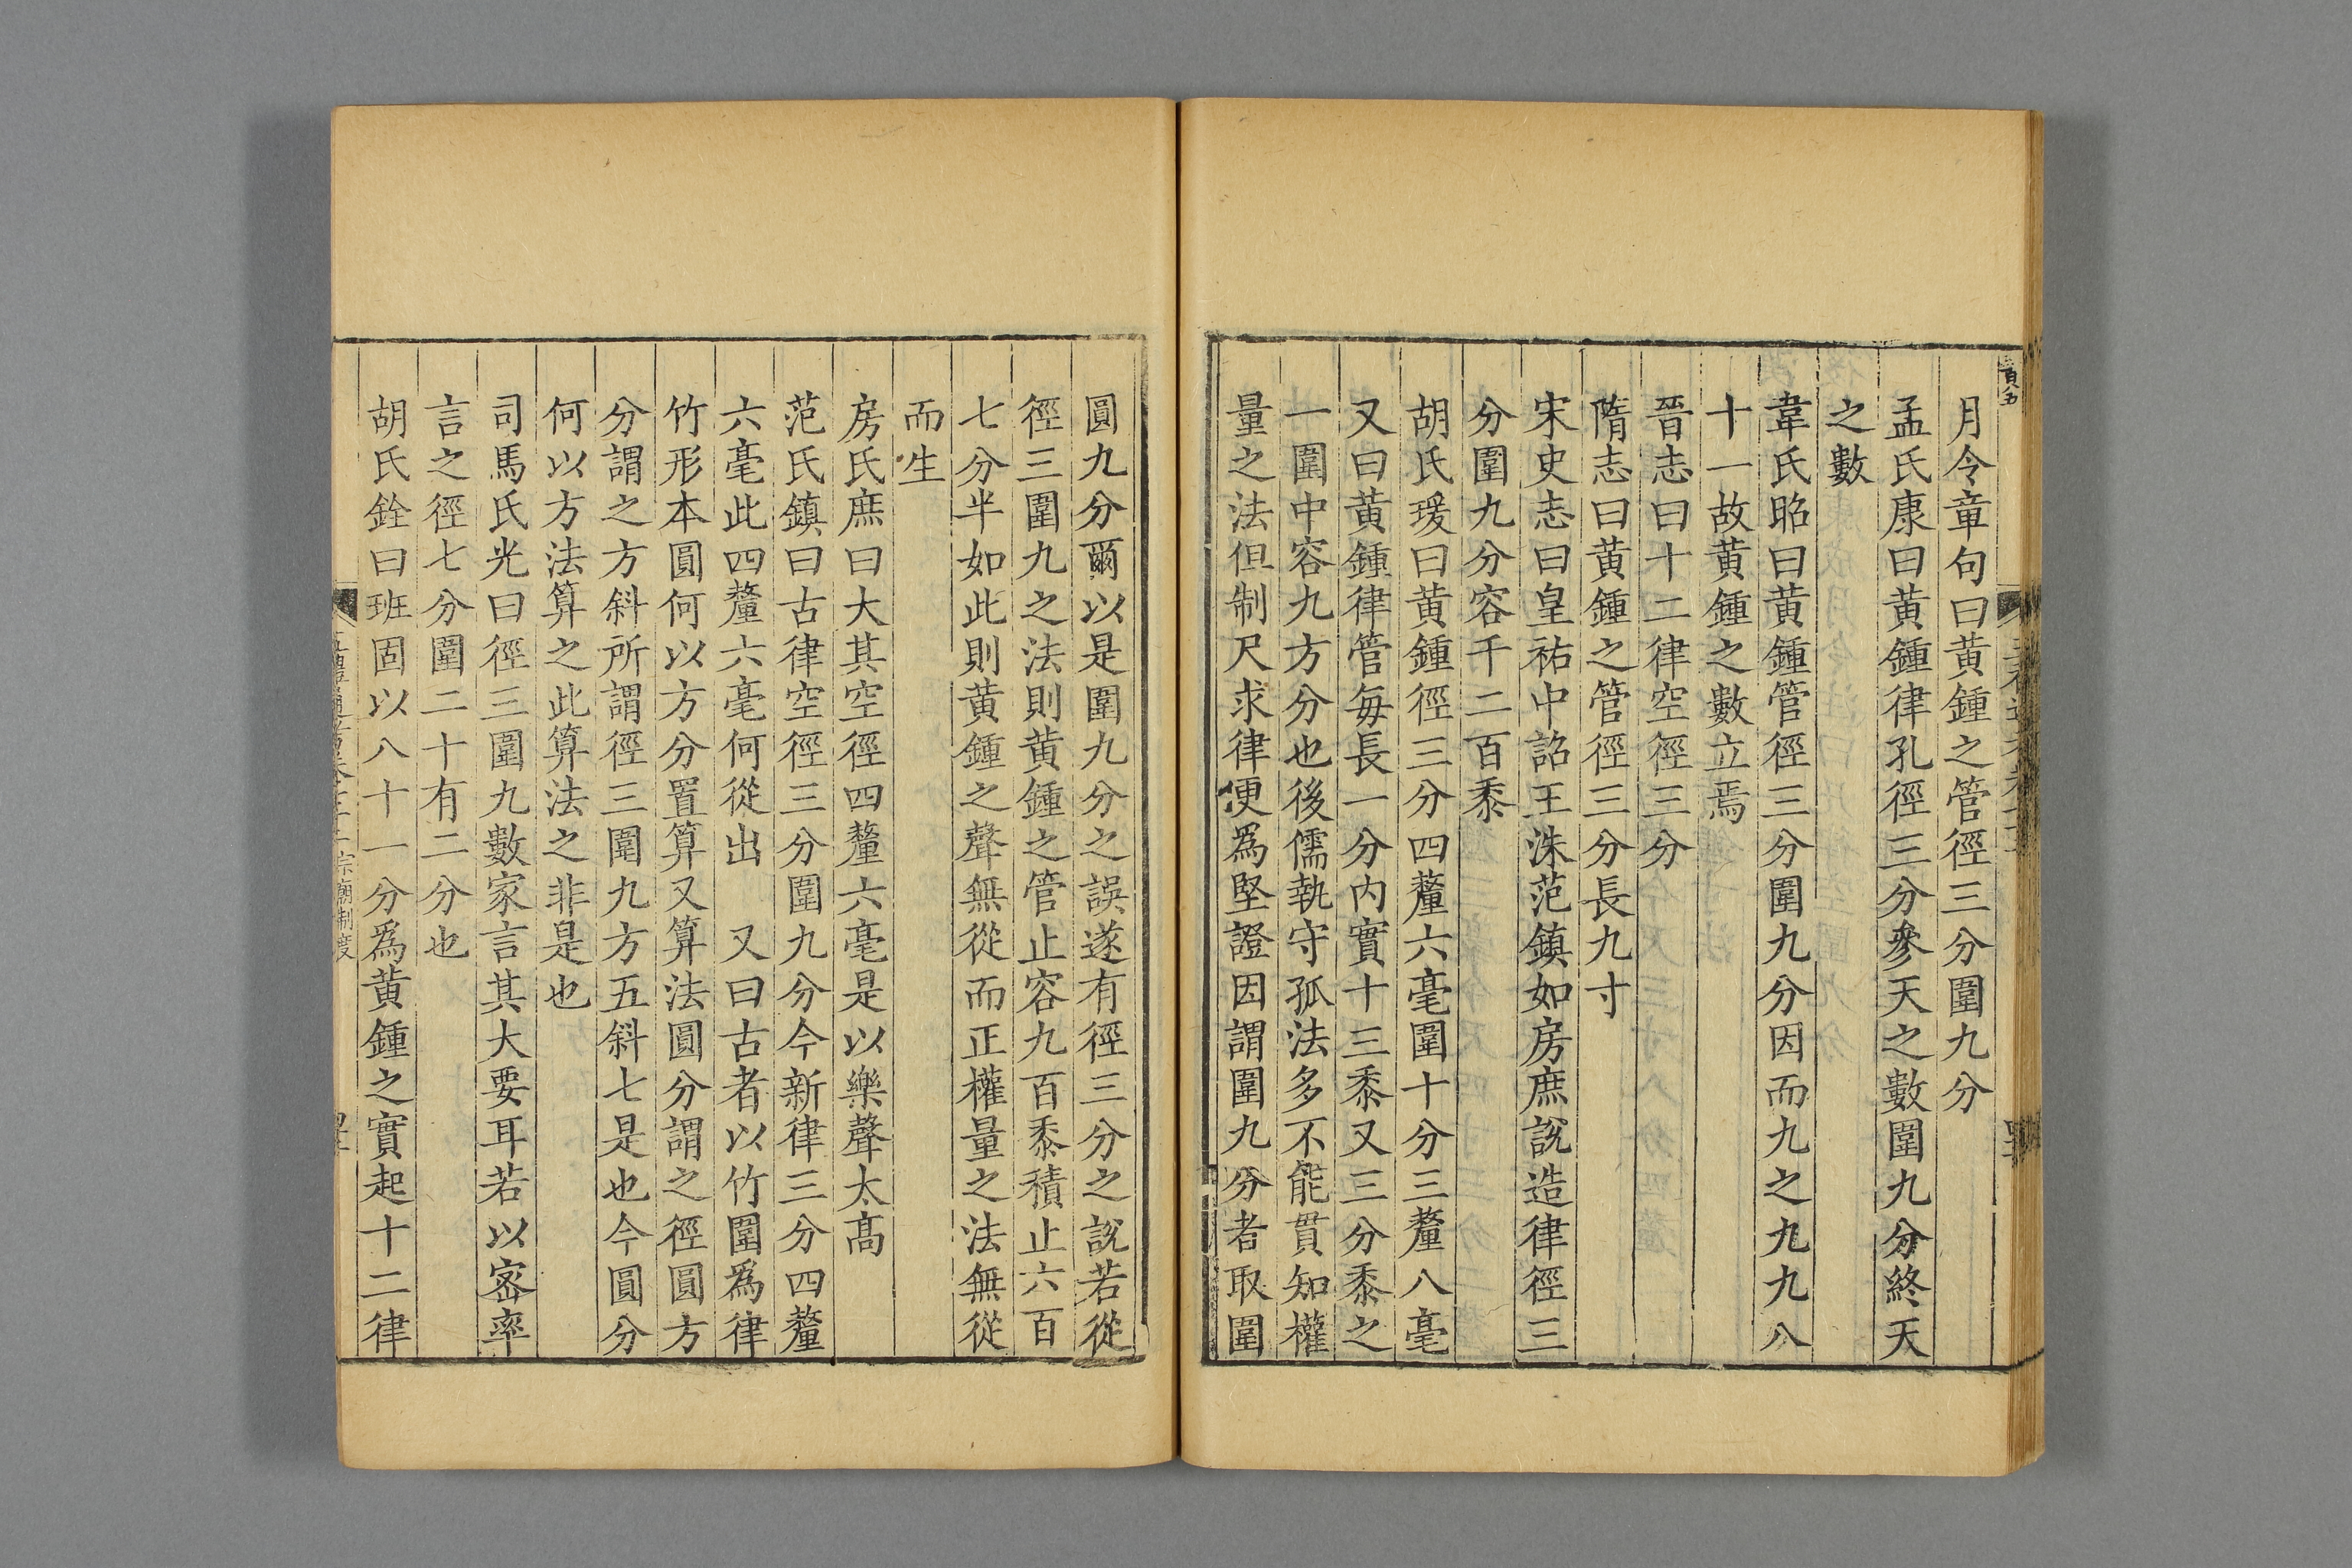 月令章句曰黃鍾之管徑三分圍九分
孟氏康曰黃鍾律孔徑三分參天之數圍九分終天
之數
韋氏昭曰黃鍾管徑三分圍九分因而九之九九八
十一故黃鍾之數立焉
晉志曰十二律空徑三分
隋志曰黃鍾之管徑三分長九寸
宋史志曰皇祐中詔王洙范鎮如房庶說造律徑三
分圍九分容千二百黍
胡氏瑗曰黃鍾徑三分四釐六毫圍十分三釐八毫
又曰黃鍾律管每長一分內實十三黍又三分黍之
一圍中容九方分也後儒執守孤法多不能貫知權
量之法但制尺求律便爲堅證因謂圍九分者取圍
圓九分爾以是圍九分之誤遂有徑三分之說若從
徑三圍九之法則黃鍾之管止容九百黍積止六百
七分半如此則黃鍾之聲無從而正權量之法無從
而生
房氏庶曰大其空徑四釐六毫是以樂聲太高
范氏鎮曰古律空徑三分圍九分今新律三分四釐
六毫此四釐六毫何從出　又曰古者以竹圍爲律
竹形本圓何以方分置算又算法圓分謂之徑圓方
分謂之方斜所謂徑三圍九方五斜七是也今圓分
何以方法算之此算法之非是也
司馬氏光曰徑三圍九數家言其大要耳若以密率
言之徑七分圍二十有二分也
胡氏銓曰班固以八十一分爲黃鍾之實起十二律
宗廟制度